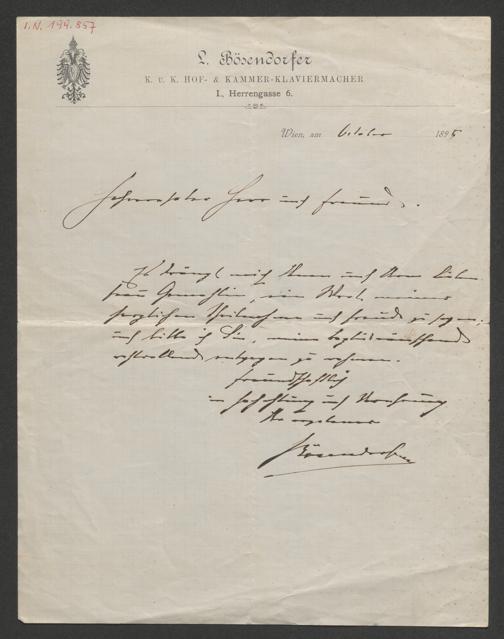 I.N. 194.857
L. Bösendorfer
K. U. K. HOF- & KAMMER-KLAVIERMACHER
I., Herrengasse 6.
Wien, am October 1895
Herr und Freund.
Es drängt mich Ihnen und Ihrer lieben
Frau Gemahlin, ein Wort meiner
herzlichen Theilnahme und Freude zu sagen;
und bitte ich Sie, meine
wohlwollend entgegen zu nehmen.
Freundschaftlich
in Hochachtung und Verehrung
Ihr ergebener
Bösendorfer